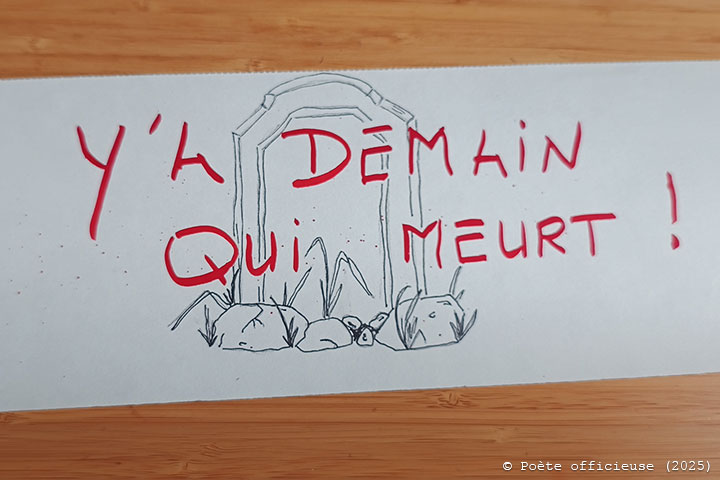 Y'A DEMAIN
QUI MEURT !
© Poète officieuse (2025)